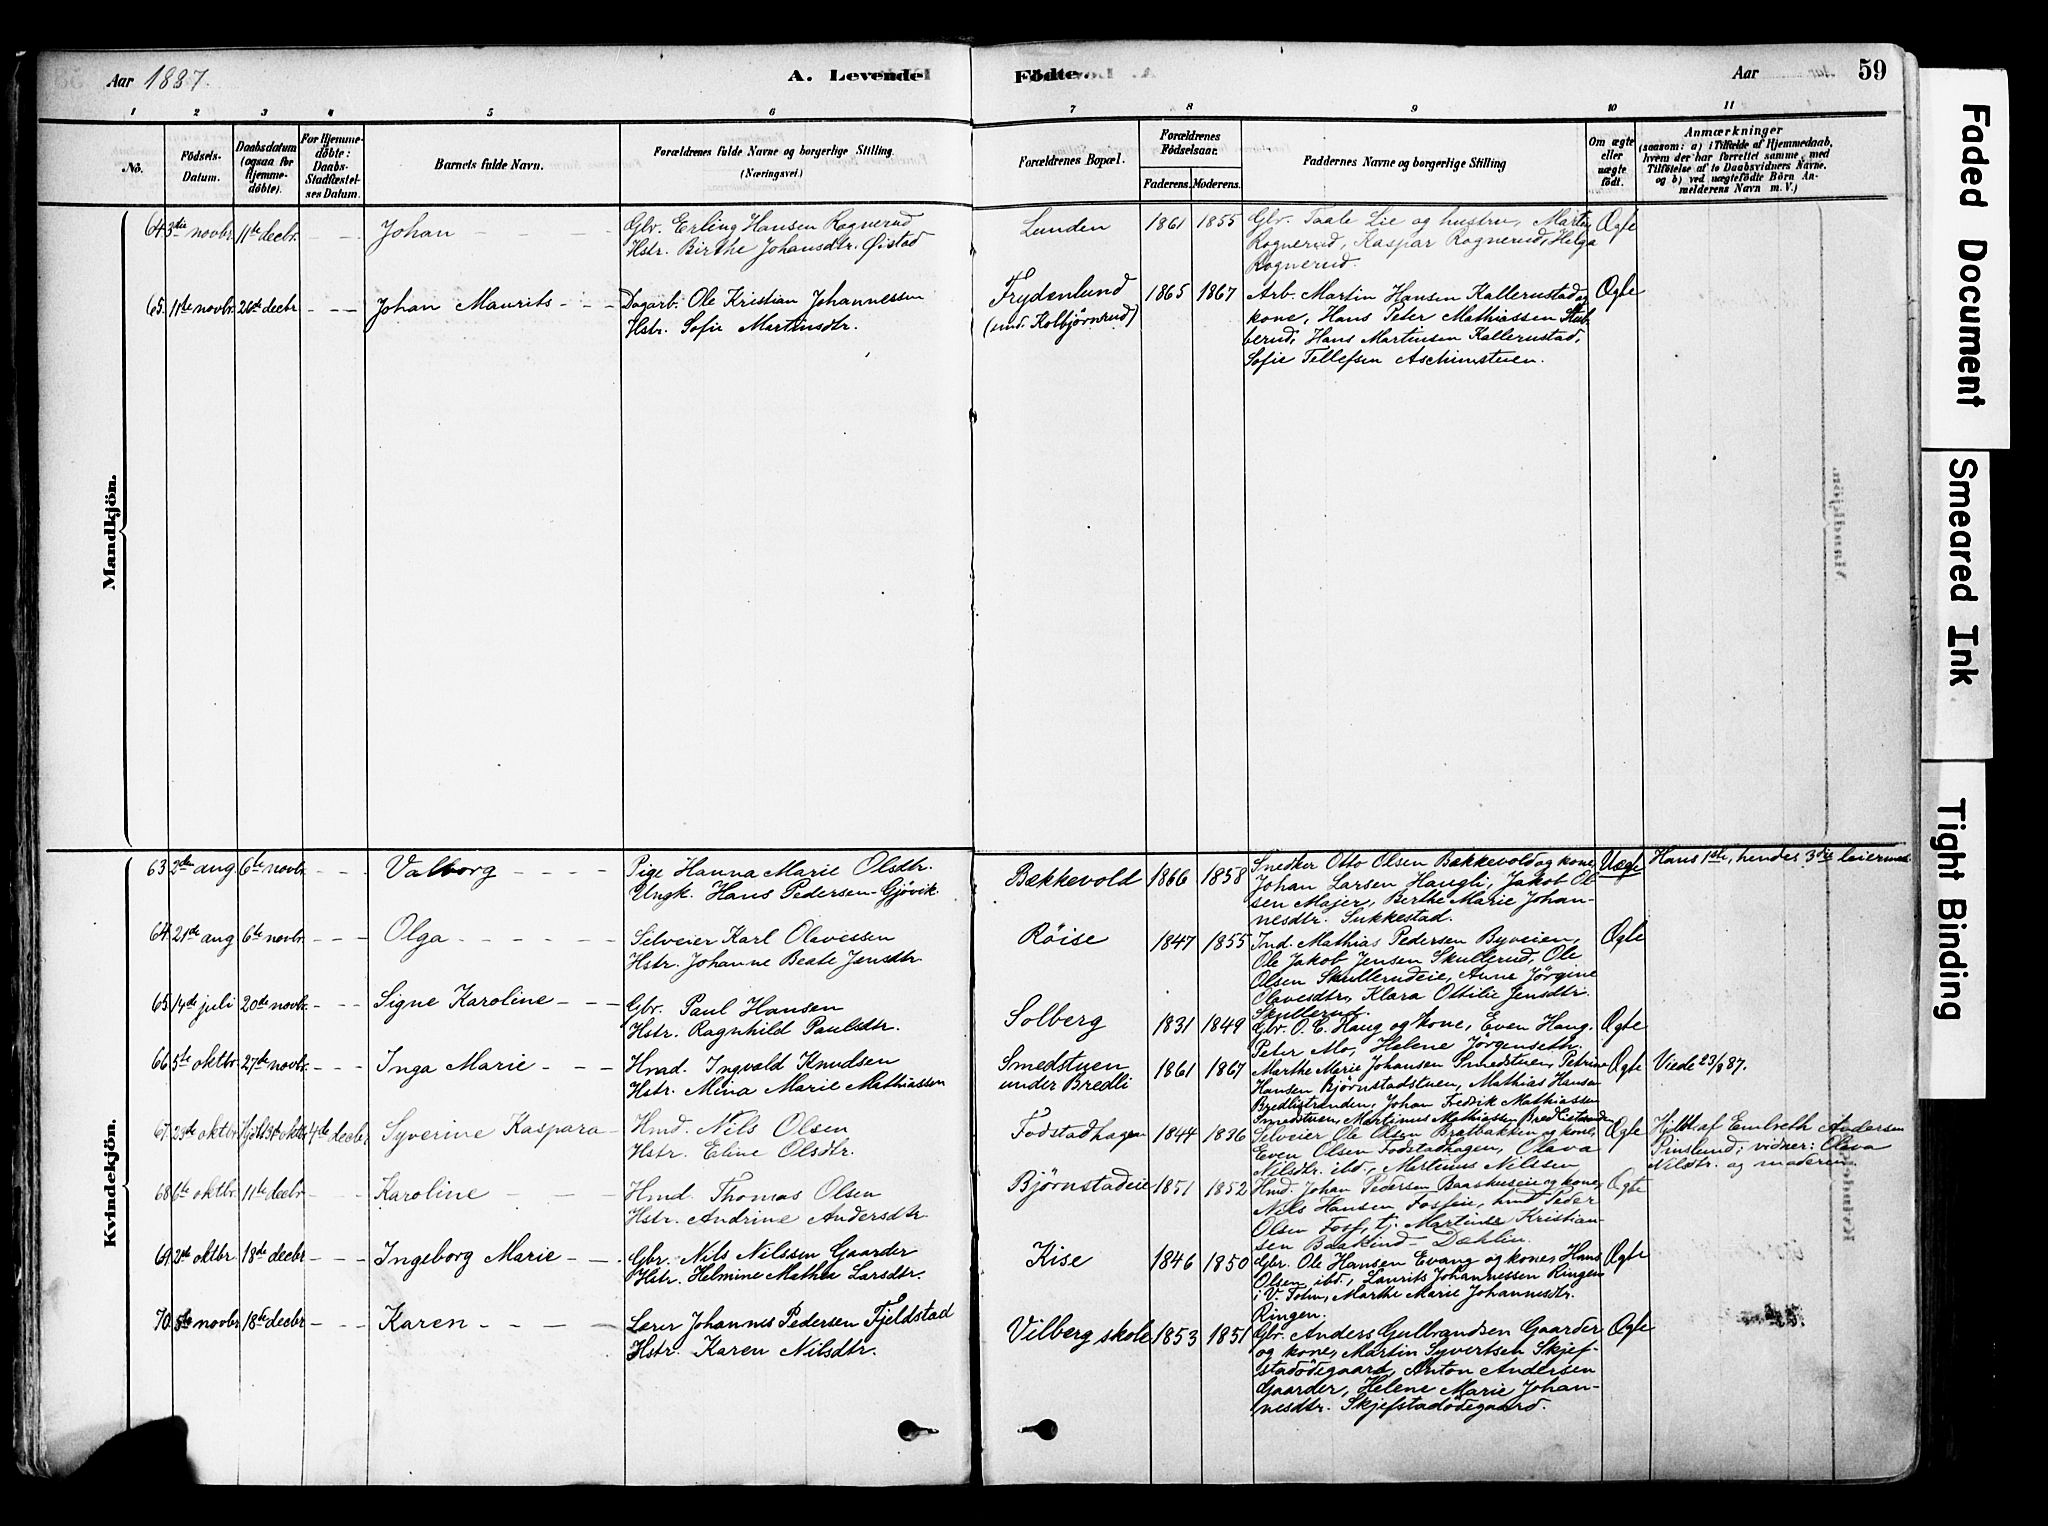 Aar 1887.
A. Levende
Födte.
Aar
59
1 2 3 4 5 6 7 8 9 10 11
No.
Födsels-
Datum.
Daabsdatum
(ogsaa for
Hjemme-
döbte).
For Hjemme-
döbte:
Daabs-
Stadfæstel-
ses Datum.
Barnets fulde Navn.
Forældrenes fulde Navne og borgerlige Stilling.
(Næringsvei.)
Forældrenes Bopæl.
Forældrenes
Födselsaar.
Faderens. Moderens.
Faddernes Navne og borgerlige Stilling
Om ægte
eller
uægte
födt.
Anmærkninger
(saasom: a) i Tilfælde af Hjemmedaab,
hvem der har forrettet samme, med
Tilföielse af to Daabsvidners Navne,
og b) ved uægtefödte Börn An-
melderens Navn m. V.)
Mandkjön.
64 3die novbr. 11te decbr. Johan
Gbr. Erling Hansen Rognerud
Hstr. Birthe Johansdtr. Øistad
Lunden 1861 1855
Gbr. Taale Lie og hustru, Martin
Rognerud, Kaspar Rognerud, Helga
Rognerud.
Ægte
65. 11te novbr. 26de decbr Johan Maurits
Dagarb. Ole Kristian Johannessen
Hstr. Sofie Martinsdtr.
Frydenlund
(und. Kolbjörnrud)
1865 1867
Arb. Martin Hansen Kallerustad og
kone, Hans Peter Mathiassen Stub-
berud, Hans Martinsen Kallerustad,
Sofie Tellefsen Aschimstuen.
Ægte
Kvindekjön.
63 2den aug 6te novbr. Valborg
Pige Hanna Marie Olsdtr.
Ungk. Hans Pedersen Gjövik
Bækkevold 1866 1858
Snedker Otto Olsen Bækkevold og kone,
Johan Larsen Haugli, Jakob Ol-
sen Majer, Berthe Marie Johan-
nesdtr. Sukkestad.
Uægte
Hans 1ste, hendes 3die leiermaal
64 21de aug 6te novbr. Olga
Selveier Karl Olavessen
Hstr. Johanne Beate Jensdtr
Röise 1847 1855
Ind. Mathias Pedersen Byveien,
Ole Jakob Jensen Skullerud, Ole
Olsen Skullerudeie, Anne Jörgine
Olavesdtr, Klara Ottilie Jensdtr.
Skullerud.
Ægte
65 14de juli 20de novbr. Signe Karoline
Gbr. Paul Hansen
Hstr. Ragnhild Paulsdtr.
Solberg 1831 1849
Gbr. O. C. Haug og kone, Even Haug.
Peter Mo, Helene Jørgenseth.
Ægte
66 5te oktbr. 27de novbr. Inga Marie
Hmd. Ingvald Knudsen
Hstr. Mina Marie Mathiassen
Smedstuen
under Bredli
1861 1867
Marthe Marie Johansen Smedstuen, Petrine
Hansen Björnstadstuen, Mathias Hansen
Bredlistranden, Johan Fredrik Mathiassen
Smedstuen, Martinus Mathiassen Bredlistranden
Ægte
Viede 23/8 87.
67 23de oktbr. Hjdt. 31te oktbr. 4de decbr. Syverine Kaspara
Hmd. Nils Olsen
Hstr. Eline Olsdtr.
Fodstadhagen 1844 1836
Selveier Ole Olsen Bratbakken og kone,
Even Olsen Fodstadhagen, Olava
Nilsdtr. ibd., Martinus Nilssen
Ægte
Hjdt. af Embreth Andersen
Pinslund; vidner: Olava
Nilsdtr. og moderen
68 6te oktbr. 11te decbr. Karoline
Hmd. Thomas Olsen
Hstr. Andrine Andersdtr
Björnstadeie 1851 1852
Hmd. Johan Pedersen Baashuseie og kone,
Nils Hansen Fosseie, hmd Peder
Olsen Fosf, tj. Martinus Kristian-
sen Baakind-Dæhlin.
Ægte
69 2de oktbr 18de decbr Ingeborg Marie
Gbr. Nils Nilssen Gaarder
Hstr. Helmine Mathea Larsdtr.
Kise 1846 1850
Gbr. Ole Hansen Evang og kone, Hans
Olsen ibd., Laurits Johannessen Ringen
i V. Toten, Marthe Marie Johannesdtr.
Ringen.
Ægte
70 8de novbr 18de decbr Karen
Lærer Johannes Pedersen Fjeldstad
Hstr. Karen Nilsdtr.
Vilberg skole 1853 1851
Gbr. Anders Gulbrandsen Gaarder
og kone, Martin Syvertsen Skjef-
stadödegaard, Anton Andersen
Gaarder, Helene Marie Johan-
nesdtr. Skjefstadödegaard.
Ægte
Faded Document
Smeared Ink
Tight Binding